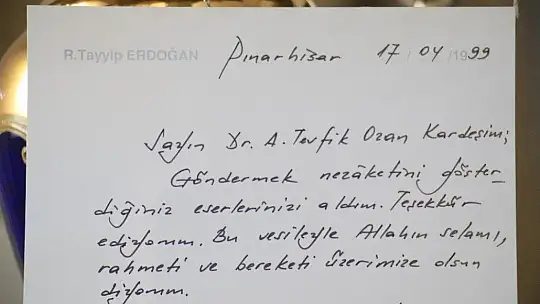 R.Tayyip ERDOĞAN
Pınarhisar 17 / 04 / 1999
Sayın Dr. A. Tevfik Ozan Kardeşim;
Göndermek nezâketini göster_
diğiniz eserlerinizi aldım. Teşekkür
ediyorum. Bu vesileyle Allahın selamı,
rahmeti ve bereketi üzerimize olsun
diyorum.